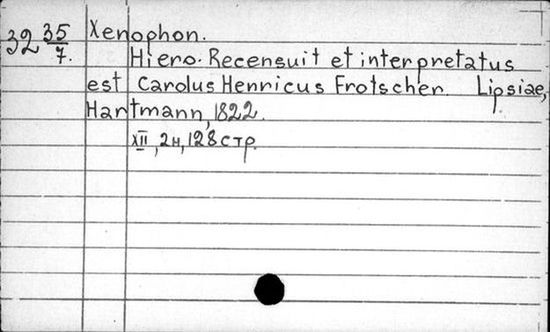 32 35/7. Xenophon.
Hiero. Recensuit et interpretatus
est Carolus Henricus Frotscher. Lipsiae,
Hartmann, 1822.
XII, 2н, 128 стр.